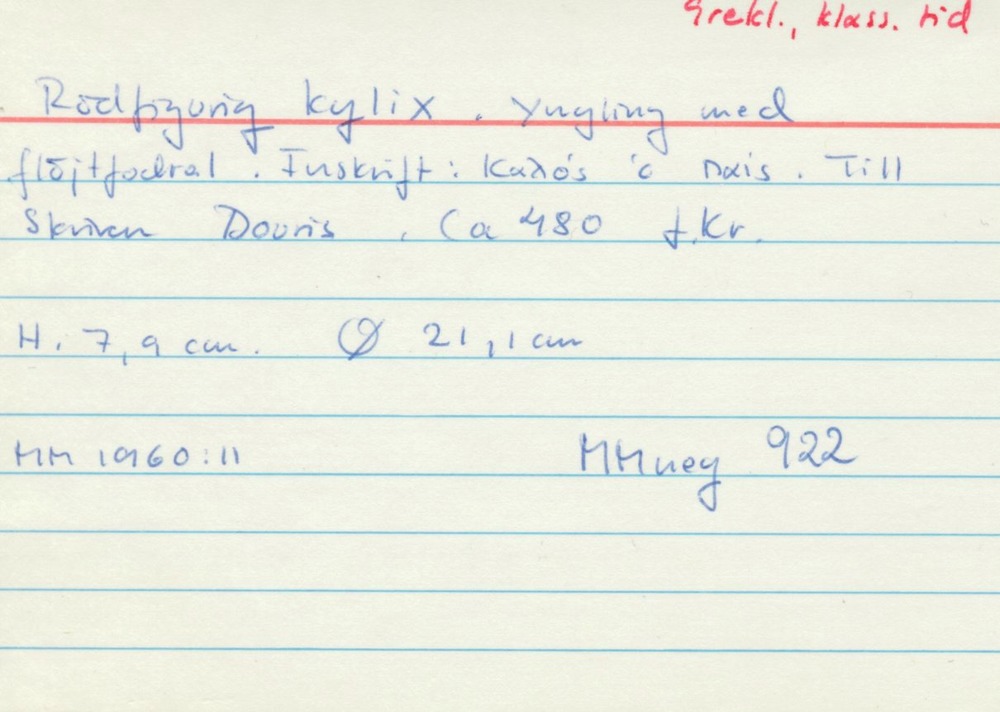 Grekl., klass. tid
Rödfigurig kylix. Yngling med
flöjtfodral. Inskrift: Καλός ὁ παις. Till
skriven Douris. Ca 480 f.Kr.
H. 7,9 cm. Ø 21,1 cm
MM 1960:11 MMneg 922